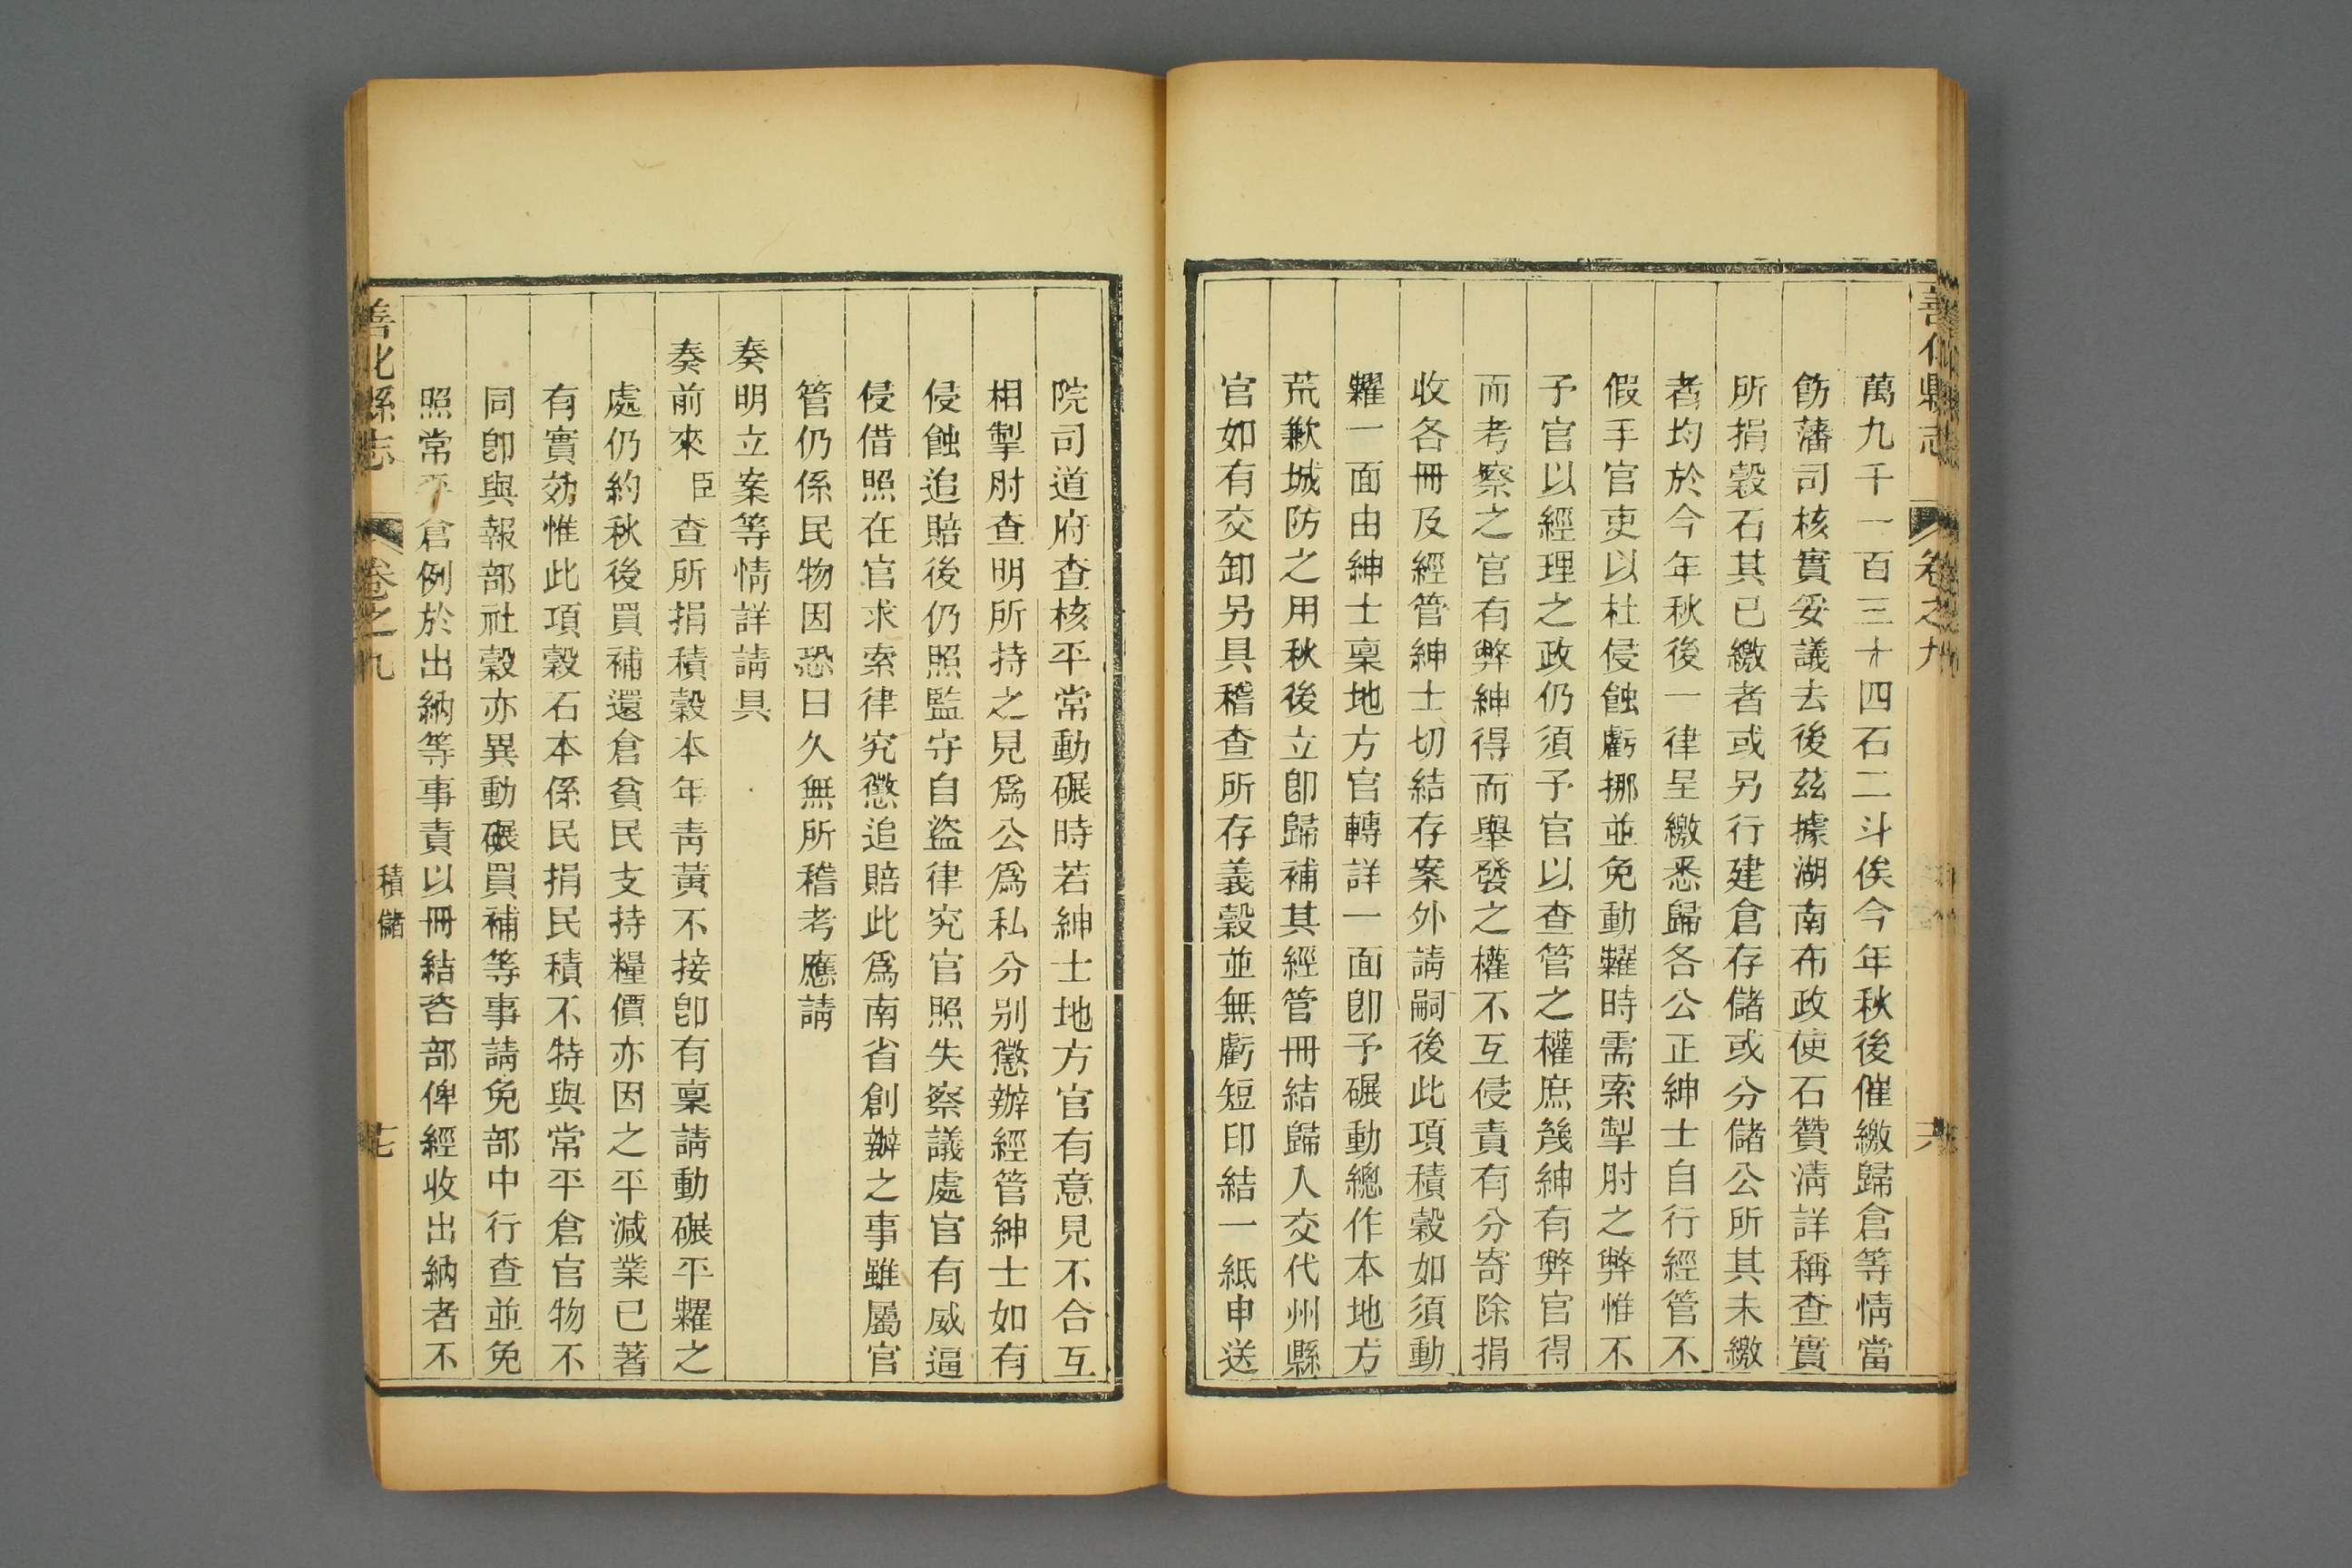 善化縣志
卷之九
萬九千一百三十四石二斗俟今年秋後催繳歸倉等情當
飭藩司核實妥議去後茲據湖南布政使石贊淸詳稱查實
所捐穀石其已繳者或另行建倉存儲或分儲公所其未繳
者均於今年秋後一律呈繳悉歸各公正紳士自行經管不
假手官吏以杜侵蝕虧挪並免動糶時需索掣肘之弊惟不
予官以經理之政仍須予官以查管之權庶幾紳有弊官得
而考察之官有弊紳得而舉發之權不互侵責有分寄除捐
收各冊及經管紳士切結存案外請嗣後此項積穀如須動
糶一面由紳士稟地方官轉詳一面卽予碾動總作本地方
荒歉城防之用秋後立卽歸補其經管冊結歸入交代州縣
官如有交卸另具稽查所存義穀並無虧短印結一紙申送
院司道府查核平常動碾時若紳士地方官有意見不合互
相掣肘查明所持之見爲公爲私分別懲辦經管紳士如有
侵蝕追賠後仍照監守自盜律究官照失察議處官有威逼
侵借照在官求索律究懲追賠此爲南省創辦之事雖屬官
管仍係民物因恐日久無所稽考應請
奏明立案等情詳請具
奏前來臣查所捐積穀本年靑黃不接卽有稟請動碾平糶之
處仍約秋後買補還倉貧民支持糧價亦因之平減業已著
有實効惟此項穀石本係民捐民積不特與常平倉官物不
同卽與報部社穀亦異動碾買補等事請免部中行查並免
照常平倉例於出納等事責以冊結咨部俾經收出納者不
善化縣志
卷之九
積儲